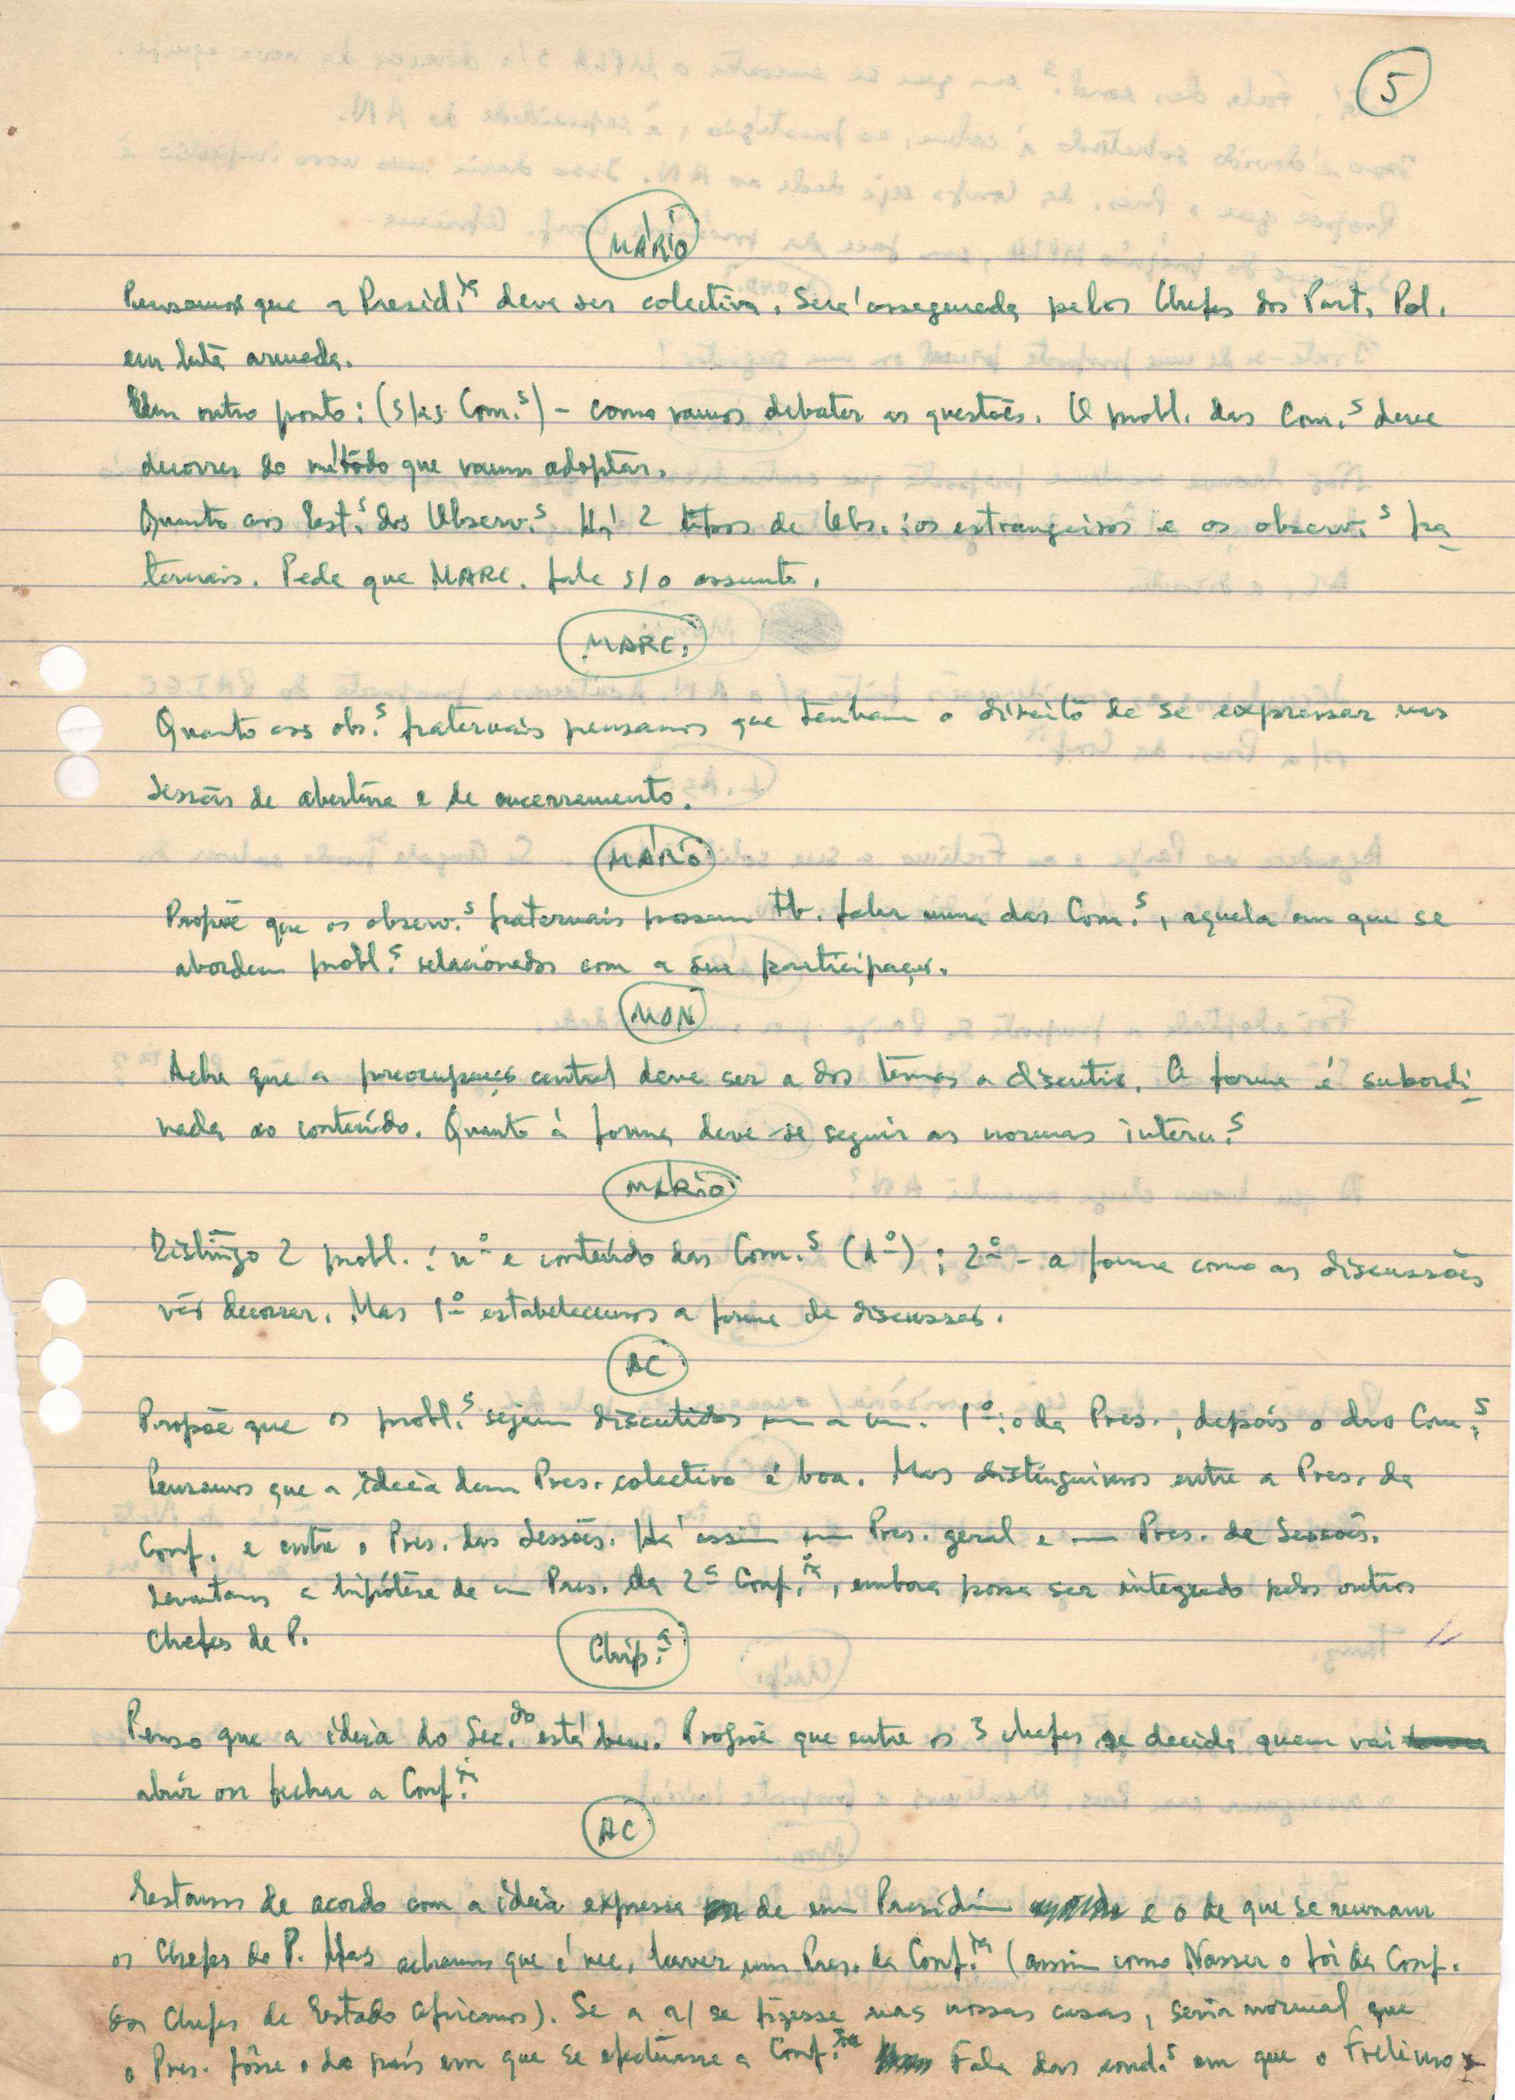 5
MÁRIO
Pensamos que a Presid.ia deve ser colectiva. Será assegurada pelos Chefes dos Part. Pol.
em luta armada.
Um outro ponto: (s/as Com.s) - como vamos debater as questões. O probl. das Com.s deve
decorrer do método que vamos adoptar.
Quanto aos Est.s dos Observ.s Há 2 tipos de Obs.: os estrangeiros e os observ.s fra
ternais. Pede que MARC. fale s/o assunto.
MARC.
Quanto aos obs.s fraternais pensamos que tenham o direito de se expressar nas
sessões de abertura e de encerramento.
MÁRIO
Propõe que os observ.s fraternais possam tb. falar numa das Com.s, aquela em que se
abordem probl.s relacionados com a sua participação.
MON
Acha que a preocupação central deve ser a dos temas a discutir. A forma é subordi
nada ao conteúdo. Quanto à forma deve-se seguir as normas intern.s
MÁRIO
Distingo 2 probl.: nº e conteúdo das Com.s (1º); 2º - a forma como as discussões
vão decorrer. Mas 1º estabelecemos a forma de discussão.
AC
Propõe que os probl.s sejam discutidos um a um. 1º: o da Pres., depois o das Com.s
Pensamos que a ideia dum Pres. colectivo é boa. Mas distinguimos entre a Pres. da
Conf. e entre o Pres. das sessões. Há assim um Pres. geral e um Pres. de Sessões.
Levantamos a hipótese de um Pres. da 2ª Conf.ia, embora possa ser integrado pelos outros
Chefes de P.
Chip.a
Penso que a ideia do Sec.do está bem. Propõe que entre os 3 chefes se decida quem vai
abrir ou fechar a Conf.ia
AC
Estamos de acordo com a ideia expressa de um Presidium e o de que se reunam
os Chefes de P. Mas achamos que é nec. haver um Pres. da Conf.ia (assim como Nasser o foi da Conf.
dos Chefes de Estado Africanos). Se a r/ se fizesse nas nossas casas, seria normal que
o Pres. fôsse o do país em que se efectuasse a Conf.ia Fala das cond.s em que o Frelimo